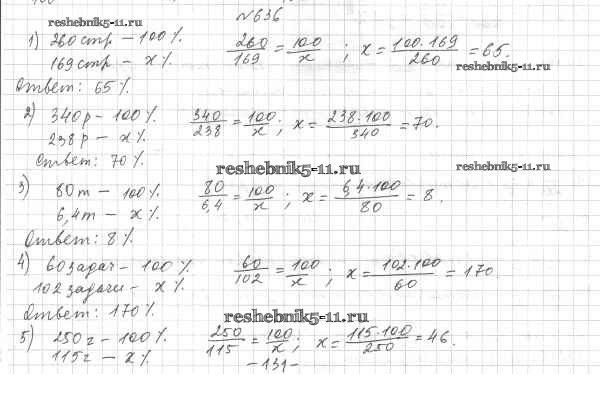 №636
reshebnik5-11.ru
1) 260 стр – 100 %. 260/169 = 100/x ; x = 100·169/260 = 65.
169 стр – x %.
reshebnik5-11.ru
Ответ: 65 %
2) 340 р – 100 %. 340/238 = 100/x ; x = 238·100/340 = 70.
238 р – x %.
Ответ: 70 %.
reshebnik5-11.ru reshebnik5-11.ru
3) 80 т – 100 %. 80/6,4 = 100/x ; x = 6,4·100/80 = 8.
6,4 т – x %.
Ответ: 8 %.
4) 60 задач – 100 %. 60/102 = 100/x ; x = 102·100/60 = 170
102 задачи – x %.
Ответ: 170 %.
reshebnik5-11.ru
5) 250 г – 100 %. 250/115 = 100/x ; x = 115·100/250 = 46.
115 г – x %.
–131–